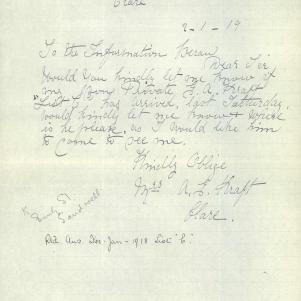 Clare
2-1-19
To the Information Berau
Dear Sir
Would you kindly let me know if
my son Private E. A. Kraft
"List 5" has arrived, last Saturday.
Would kindly let me know where
is he please. as I would like him
to come to see me.
Kindly Oblige
Mrs A. E. Kraft
Clare.
Ans. Dec-Jan-1918 List "C".